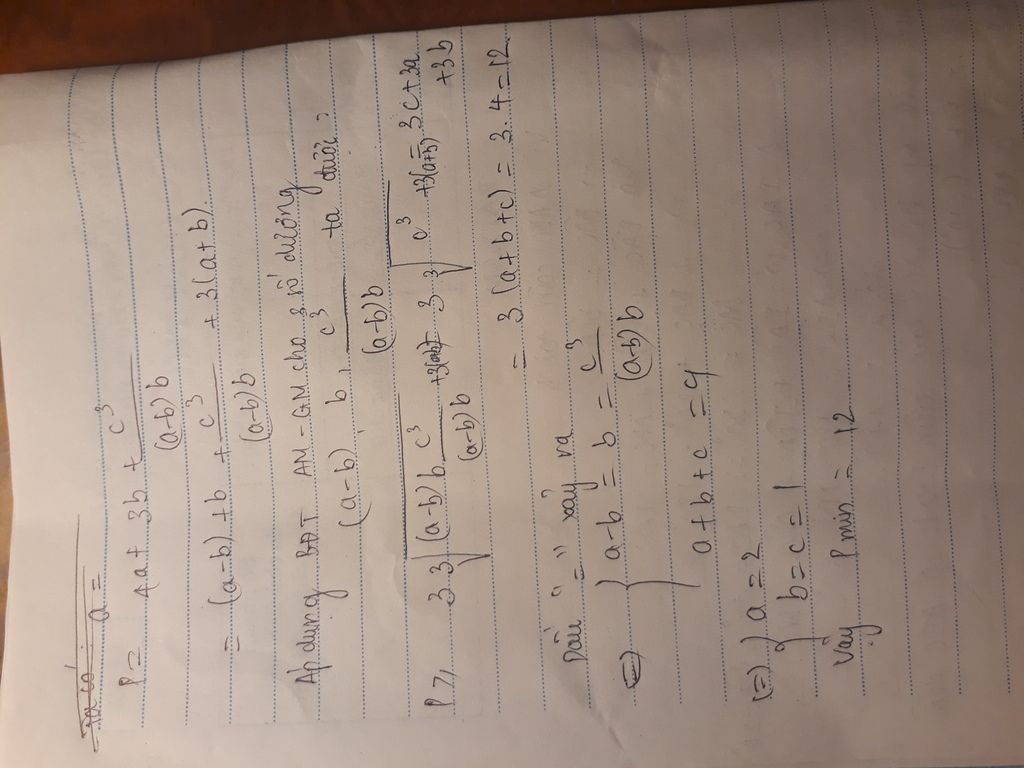 Ta có: a =
P = 4a + 3b + c³/(a-b)b
= (a-b) + b + c³/(a-b)b + 3(a+b).
Áp dụng BĐT AM-GM cho 3 số dương
(a-b), b, c³/(a-b)b ta được:
P ≥ 3 ∛((a-b)b.c³/(a-b)b) +3(a+b) = 3 ∛(c³) +3(a+b) = 3c+3a+3b
= 3(a+b+c) = 3.4 = 12
Dấu "=" xảy ra
⇔ { a-b = b = c³/(a-b)b
a+b+c = 4
⇔ { a = 2
b = c = 1
Vậy Pmin = 12